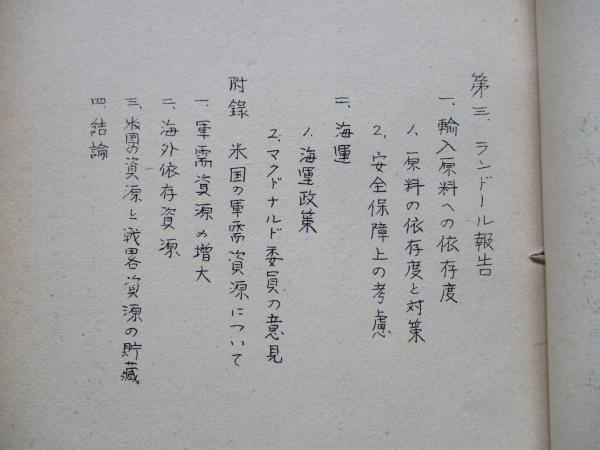 第三 ランドール報告
一、輸入原料への依存度
1、原料の依存度と対策
2、安全保障上の考慮
二、海運
1、海運政策
2、マクドナルド委員の意見
附録 米国の軍需資源について
一、軍需資源の増大
二、海外依存資源
三、米国の資源と戦略資源の貯蔵
四、結論